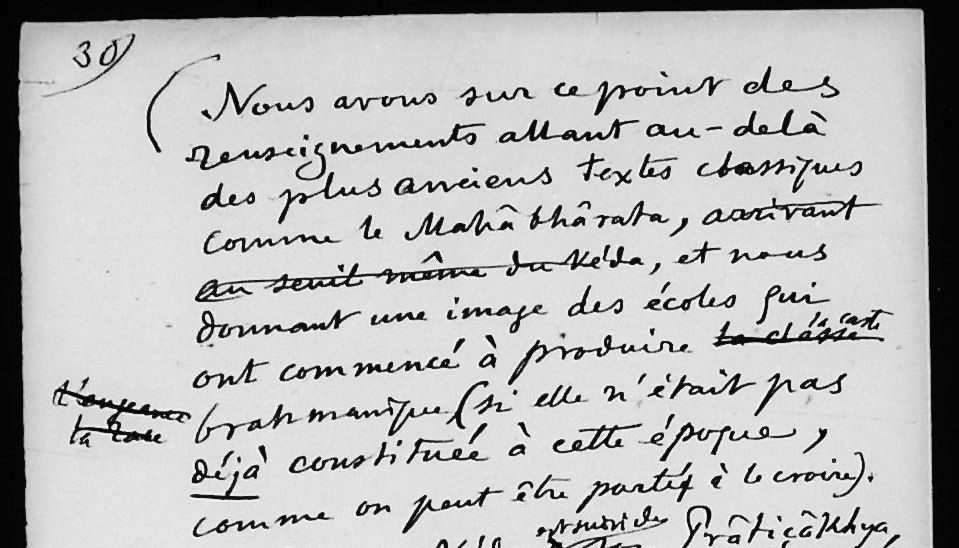 30)
(Nous avons sur ce point des
renseignements allant au-delà
des plus anciens textes classiques
comme le Mahâbhârata, arrivant
au seuil même du Véda, et nous
donnant une image des écoles qui
la caste
ont commencé à produire la classe
l'engeance
brahmanique (si elle n'était pas
la race
déjà constituée à cette époque,
comme on peut être porté à le croire).
est suivi de Prâtiçâkhya,